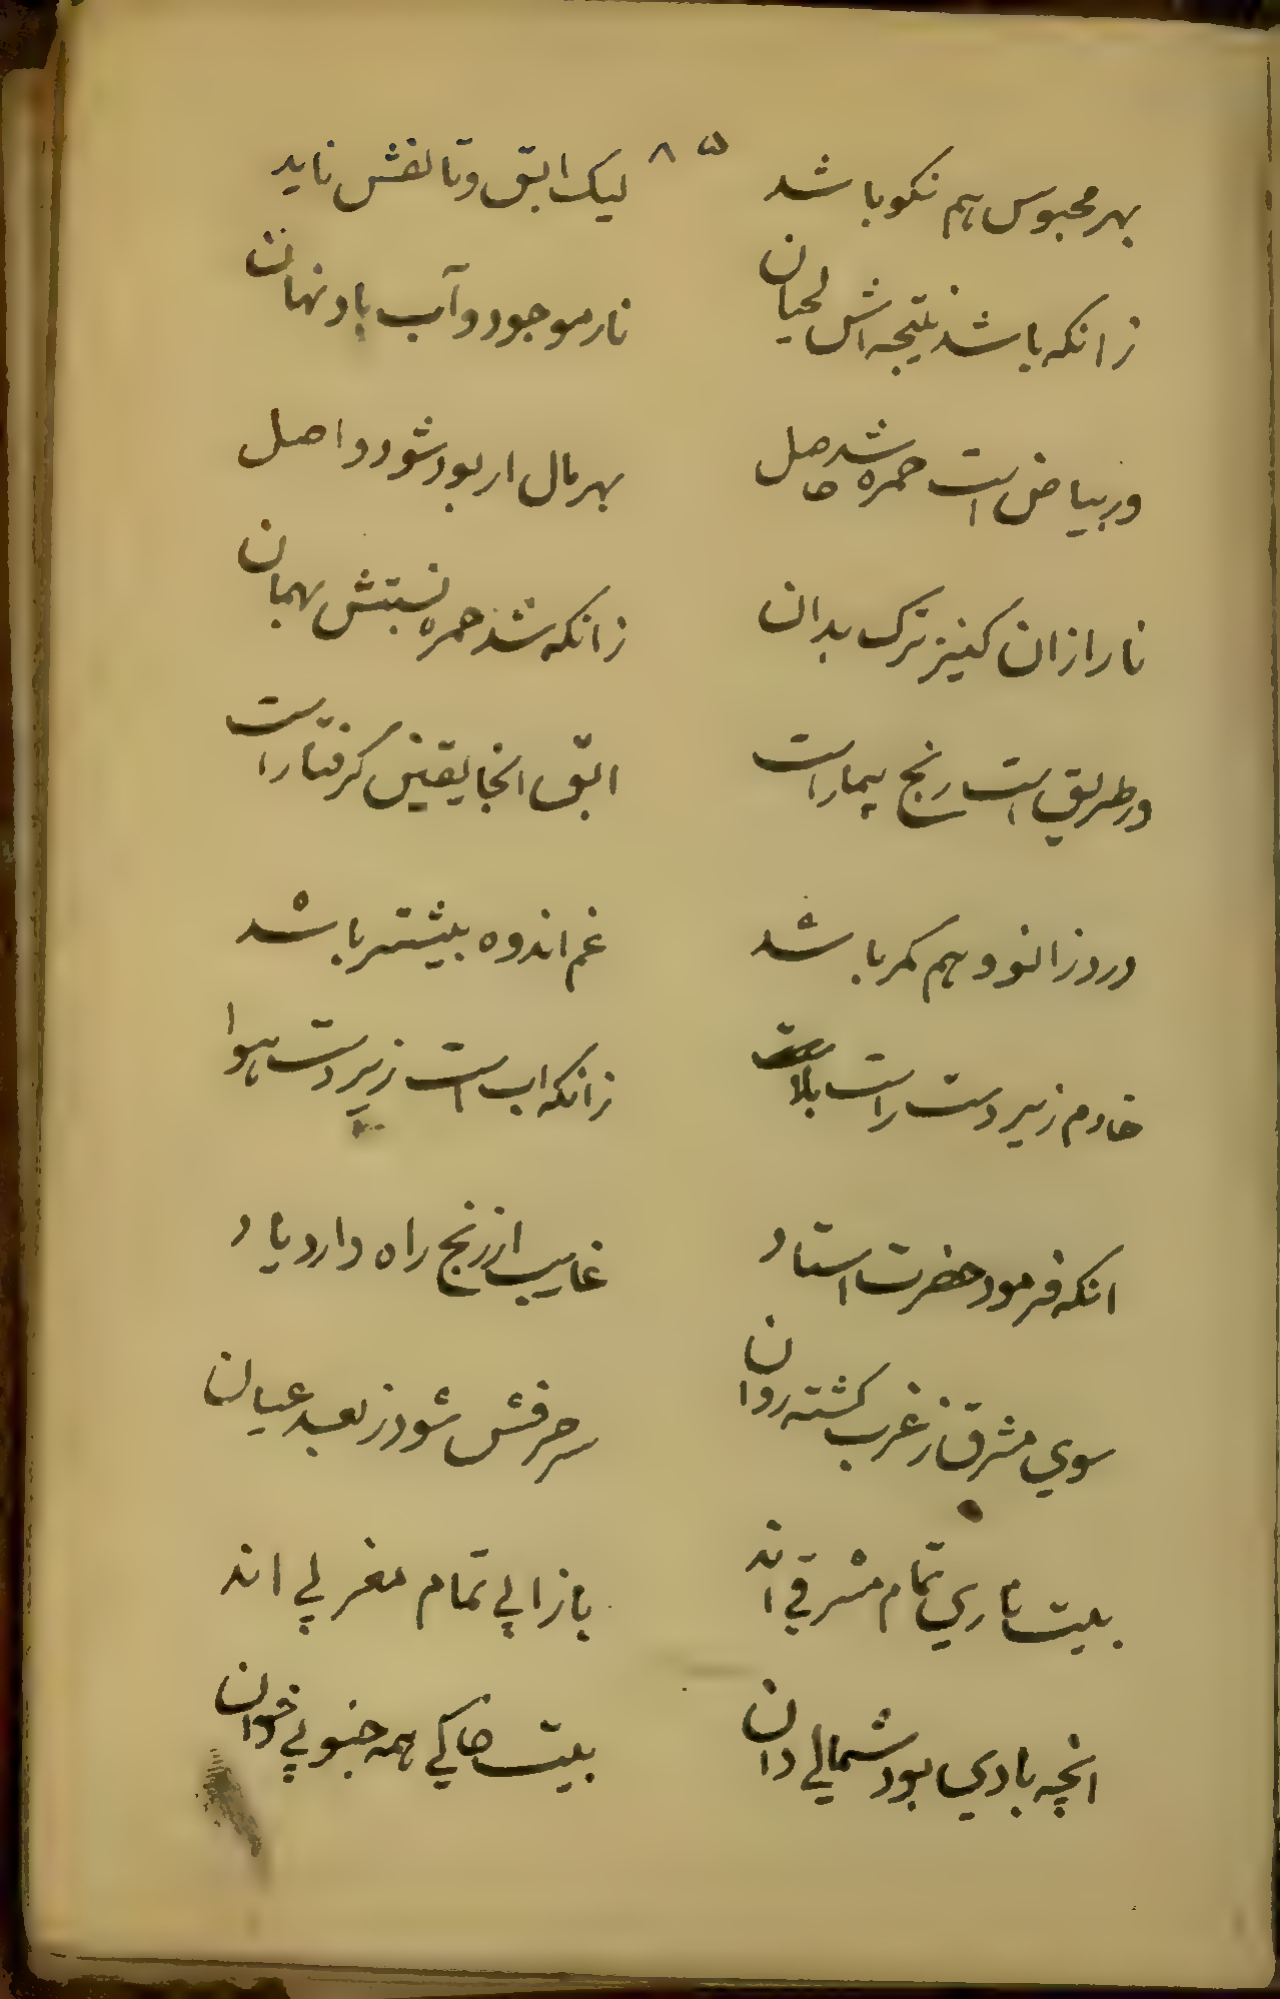 ۸۵
بهر محبوس هم نکو باشد لیک ابق و تالفش ناید
زانکه باشد نتیجه اش لحیان نار موجود و آب باد نهان
ور بیاض است حمره شد حاصل بهر مال ار بود شود واصل
نار ازان کنیز ترک بدان زانکه شد حمره نسبتش بهمان
ور طریق است رنج بیمار است ابق انجا یقین گرفتار است
درد زانو و هم کمر باشد غم اندوه بیشتر باشد
خادم زیر دست راست بلا زانکه اب است زیر دست هوا
انکه فرمود حضرت استاد غایب از رنج راه دارد یاد
سوی مشرق ز غرب گشته روان سر حرفش شود ز بعد عیان
بیت ناری تمام مشرقی اند باز ابی تمام مغربی اند
انچه بادی بود شمالی دان بیت خاکی همه جنوبی خوان